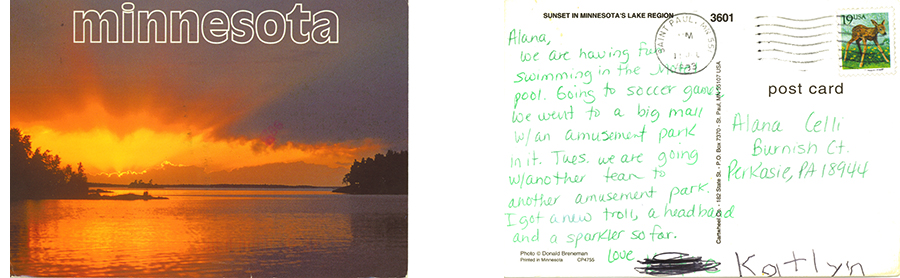 minnesota
SUNSET IN MINNESOTA'S LAKE REGION
3601
SAINT PAUL, MN 551
PM
1993
19 USA
Alana,
We are having fun
swimming in the
pool. Going to soccer games
We went to a big mall
w/an amusement park
in it. Tues. we are going
w/another team to
another amusement park.
I got a new troll, a headband
and a sparkler so far.
Love
Kaitlyn
post card
Alana Celli
Burnish Ct.
Perkasie, PA 18944
Photo © Donald Breneman
Printed in Minnesota CP4755
Co. - 182 State St. - P.O. Box 7370 - St. Paul, MN 55107 USA